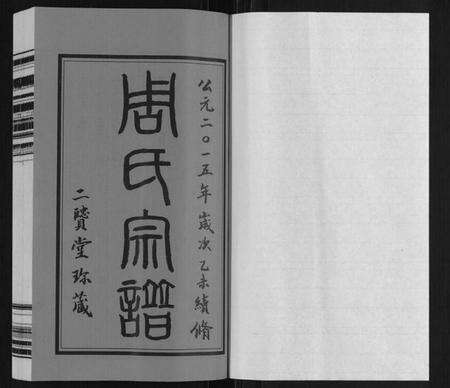 公元二〇一五年歲次乙未續脩
周氏宗譜
二賢堂珎藏